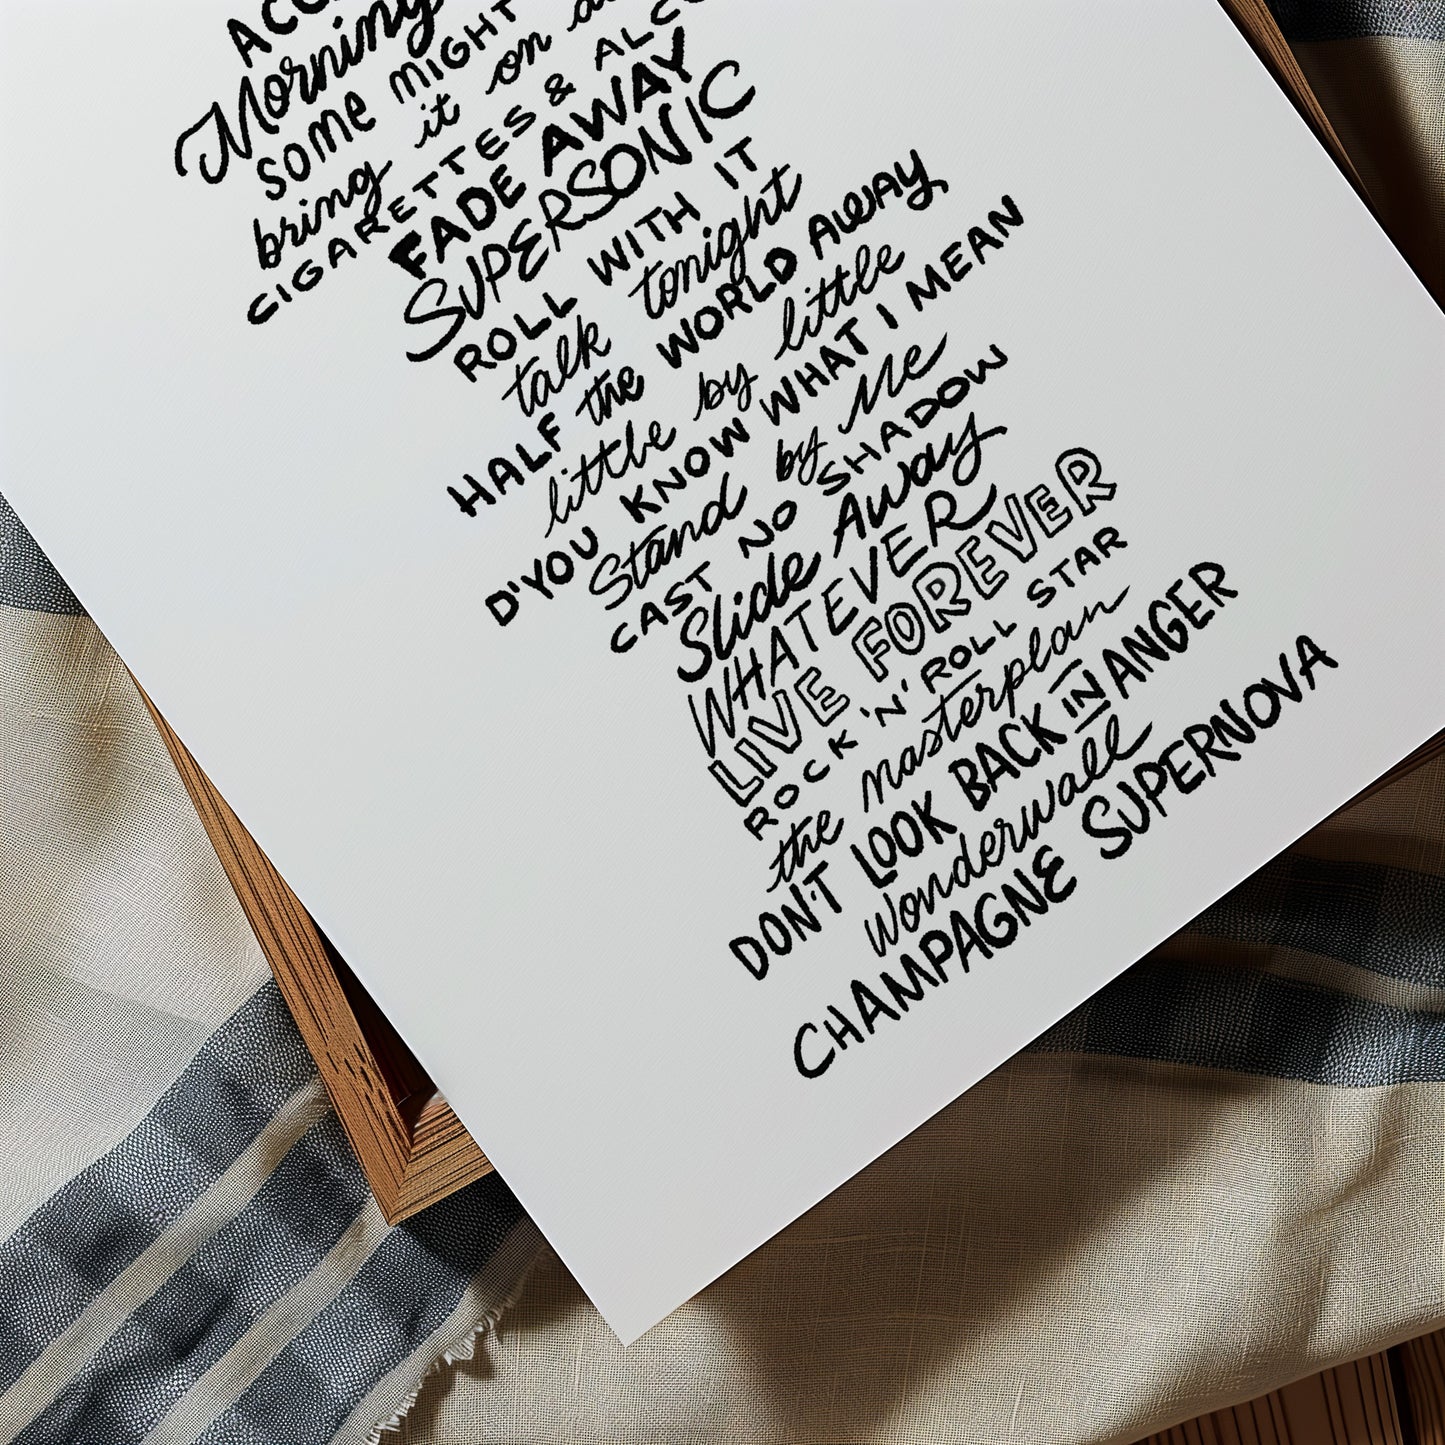 ACQ
Morning
SOME MIGHT
bring it on
CIGARETTES & ALCO
FADE AWAY
SUPERSONIC
ROLL WITH IT
talk tonight
HALF the WORLD AWAY
little by little
D'YOU KNOW WHAT I MEAN
Stand by Me
CAST NO SHADOW
Slide Away
WHATEVER
LIVE FOREVER
ROCK 'N' ROLL STAR
the masterplan
DON'T LOOK BACK IN ANGER
Wonderwall
CHAMPAGNE SUPERNOVA